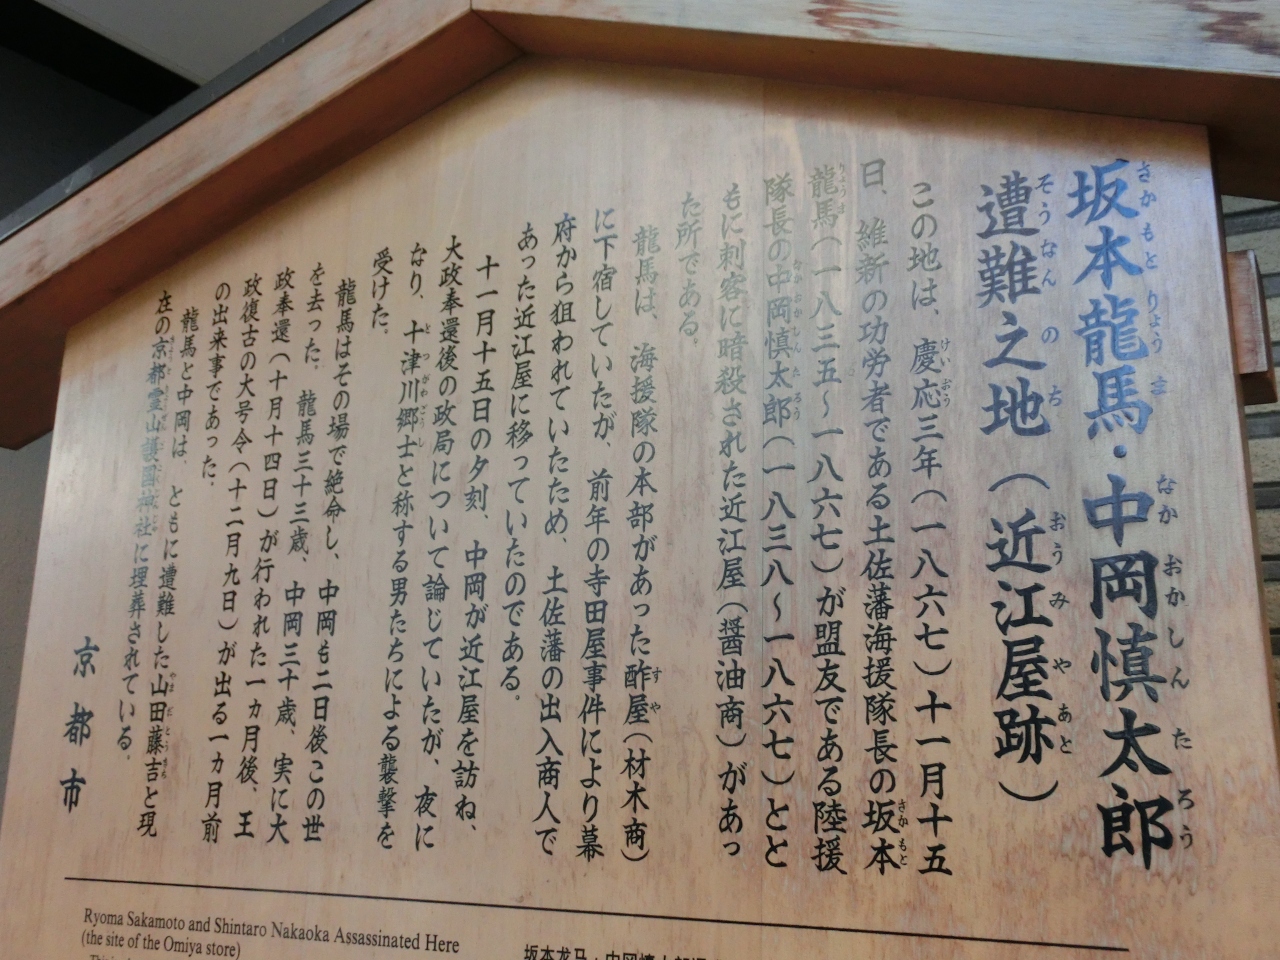 坂本龍馬・中岡慎太郎
遭難之地（近江屋跡）
この地は、慶応三年（一八六七）十一月十五
日、維新の功労者である土佐藩海援隊長の坂本
龍馬（一八三五～一八六七）が盟友である陸援
隊長の中岡慎太郎（一八三八～一八六七）とと
もに刺客に暗殺された近江屋（醤油商）があっ
た所である。
龍馬は、海援隊の本部があった酢屋（材木商）
に下宿していたが、前年の寺田屋事件により幕
府から狙われていたため、土佐藩の出入商人で
あった近江屋に移っていたのである。
十一月十五日の夕刻、中岡が近江屋を訪ね、
大政奉還後の政局について論じていたが、夜に
なり、十津川郷士と称する男たちによる襲撃を
受けた。
龍馬はその場で絶命し、中岡も二日後この世
を去った。龍馬三十三歳、中岡三十歳、実に大
政奉還（十月十四日）が行われた一カ月後、王
政復古の大号令（十二月九日）が出る一カ月前
の出来事であった。
龍馬と中岡は、ともに遭難した山田藤吉と現
在の京都霊山護国神社に埋葬されている。
京都市
Ryoma Sakamoto and Shintaro Nakaoka Assassinated Here
(the site of the Omiya store)